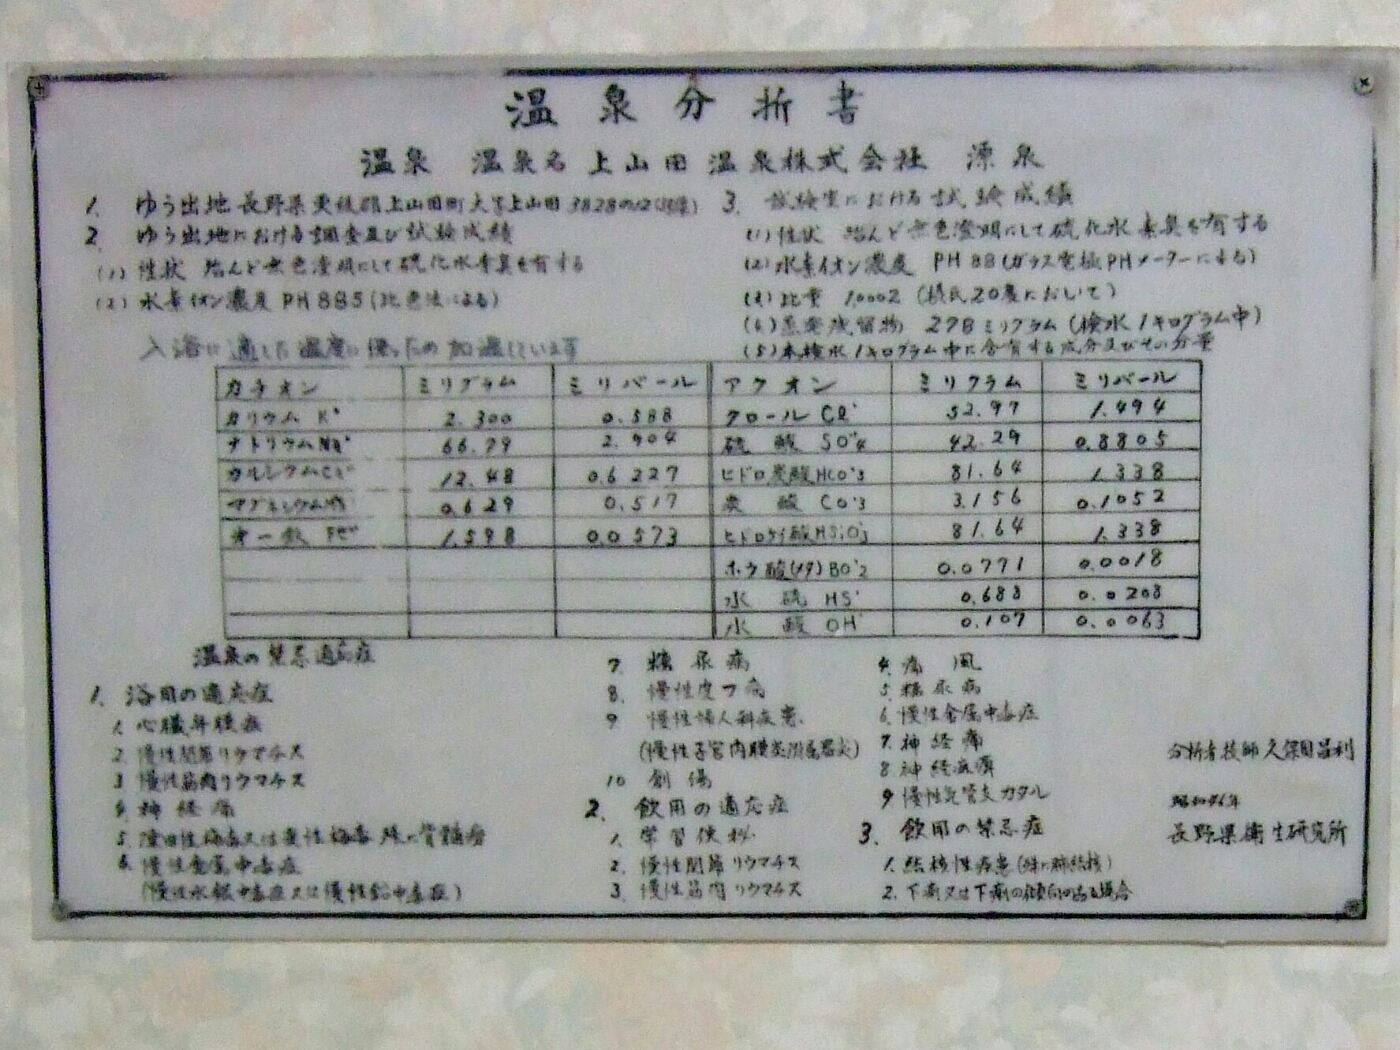 温泉分析書
温泉 温泉名 上山田温泉株式会社 源泉
1. ゆう出地 長野県更級郡上山田町大字上山田3828の12
2. ゆう出地における調査及び試験成績
(1) 性状 殆んど無色澄明にして硫化水素臭を有する
(2) 水素イオン濃度 PH 8.85 (比色法による)
入浴に適した温度に保つため加温しています
3. 試験室における試験成績
(1) 性状 殆んど無色澄明にして硫化水素臭を有する
(2) 水素イオン濃度 PH 8.8 (ガラス電極PHメーターによる)
(3) 比重 1.0002 (摂氏20度において)
(4) 蒸発残留物 278ミリグラム (検水1キログラム中)
(5) 本検水1キログラム中に含有する成分及びその分量
カチオン ミリグラム ミリバール アクオン ミリクラム ミリバール
カリウム K・ 2.300 0.588 クロール Cl' 52.97 1.494
ナトリウム Na・ 66.79 2.904 硫酸 SO"4 42.29 0.8805
カルシウム 12.48 0.6227 ヒドロ炭酸 HCO'3 81.64 1.338
マグネシウム 0.629 0.517 炭酸 CO"3 3.156 0.1052
オ一鉄 Fe 1.598 0.0573 ヒドロケイ酸 HSiO'3 81.64 1.338
ホウ酸(メタ) BO'2 0.0771 0.0018
水硫 HS' 0.688 0.0208
水酸 OH' 0.107 0.0063
温泉の禁忌適応症
1. 浴用の適応症
1. 心臓弁膜症
2. 慢性関節リウマチス
3 慢性筋肉リウマチス
4. 神経痛
5. 潜田性梅毒又は変性梅毒 殊に脊髄癆
6. 慢性金属中毒症
(慢性水銀中毒症又は慢性鉛中毒症)
7. 糖尿病
8. 慢性皮フ病
9 慢性婦人科疾患
(慢性子宮内膜炎附属器炎)
10 創傷
2. 飲用の適応症
1. 学習便秘
2. 慢性関節リウマチス
3. 慢性筋肉リウマチス
4. 痛風
5. 糖尿病
6. 慢性金属中毒症
7. 神経痛
8. 神経麻痺
9. 慢性気管支カタル
3. 飲用の禁忌症
1. 結核性疾患(殊に肺結核)
2. 下痢又は下痢の傾向のある場合
分析者技師 久保田昌利
昭和46年
長野県衛生研究所